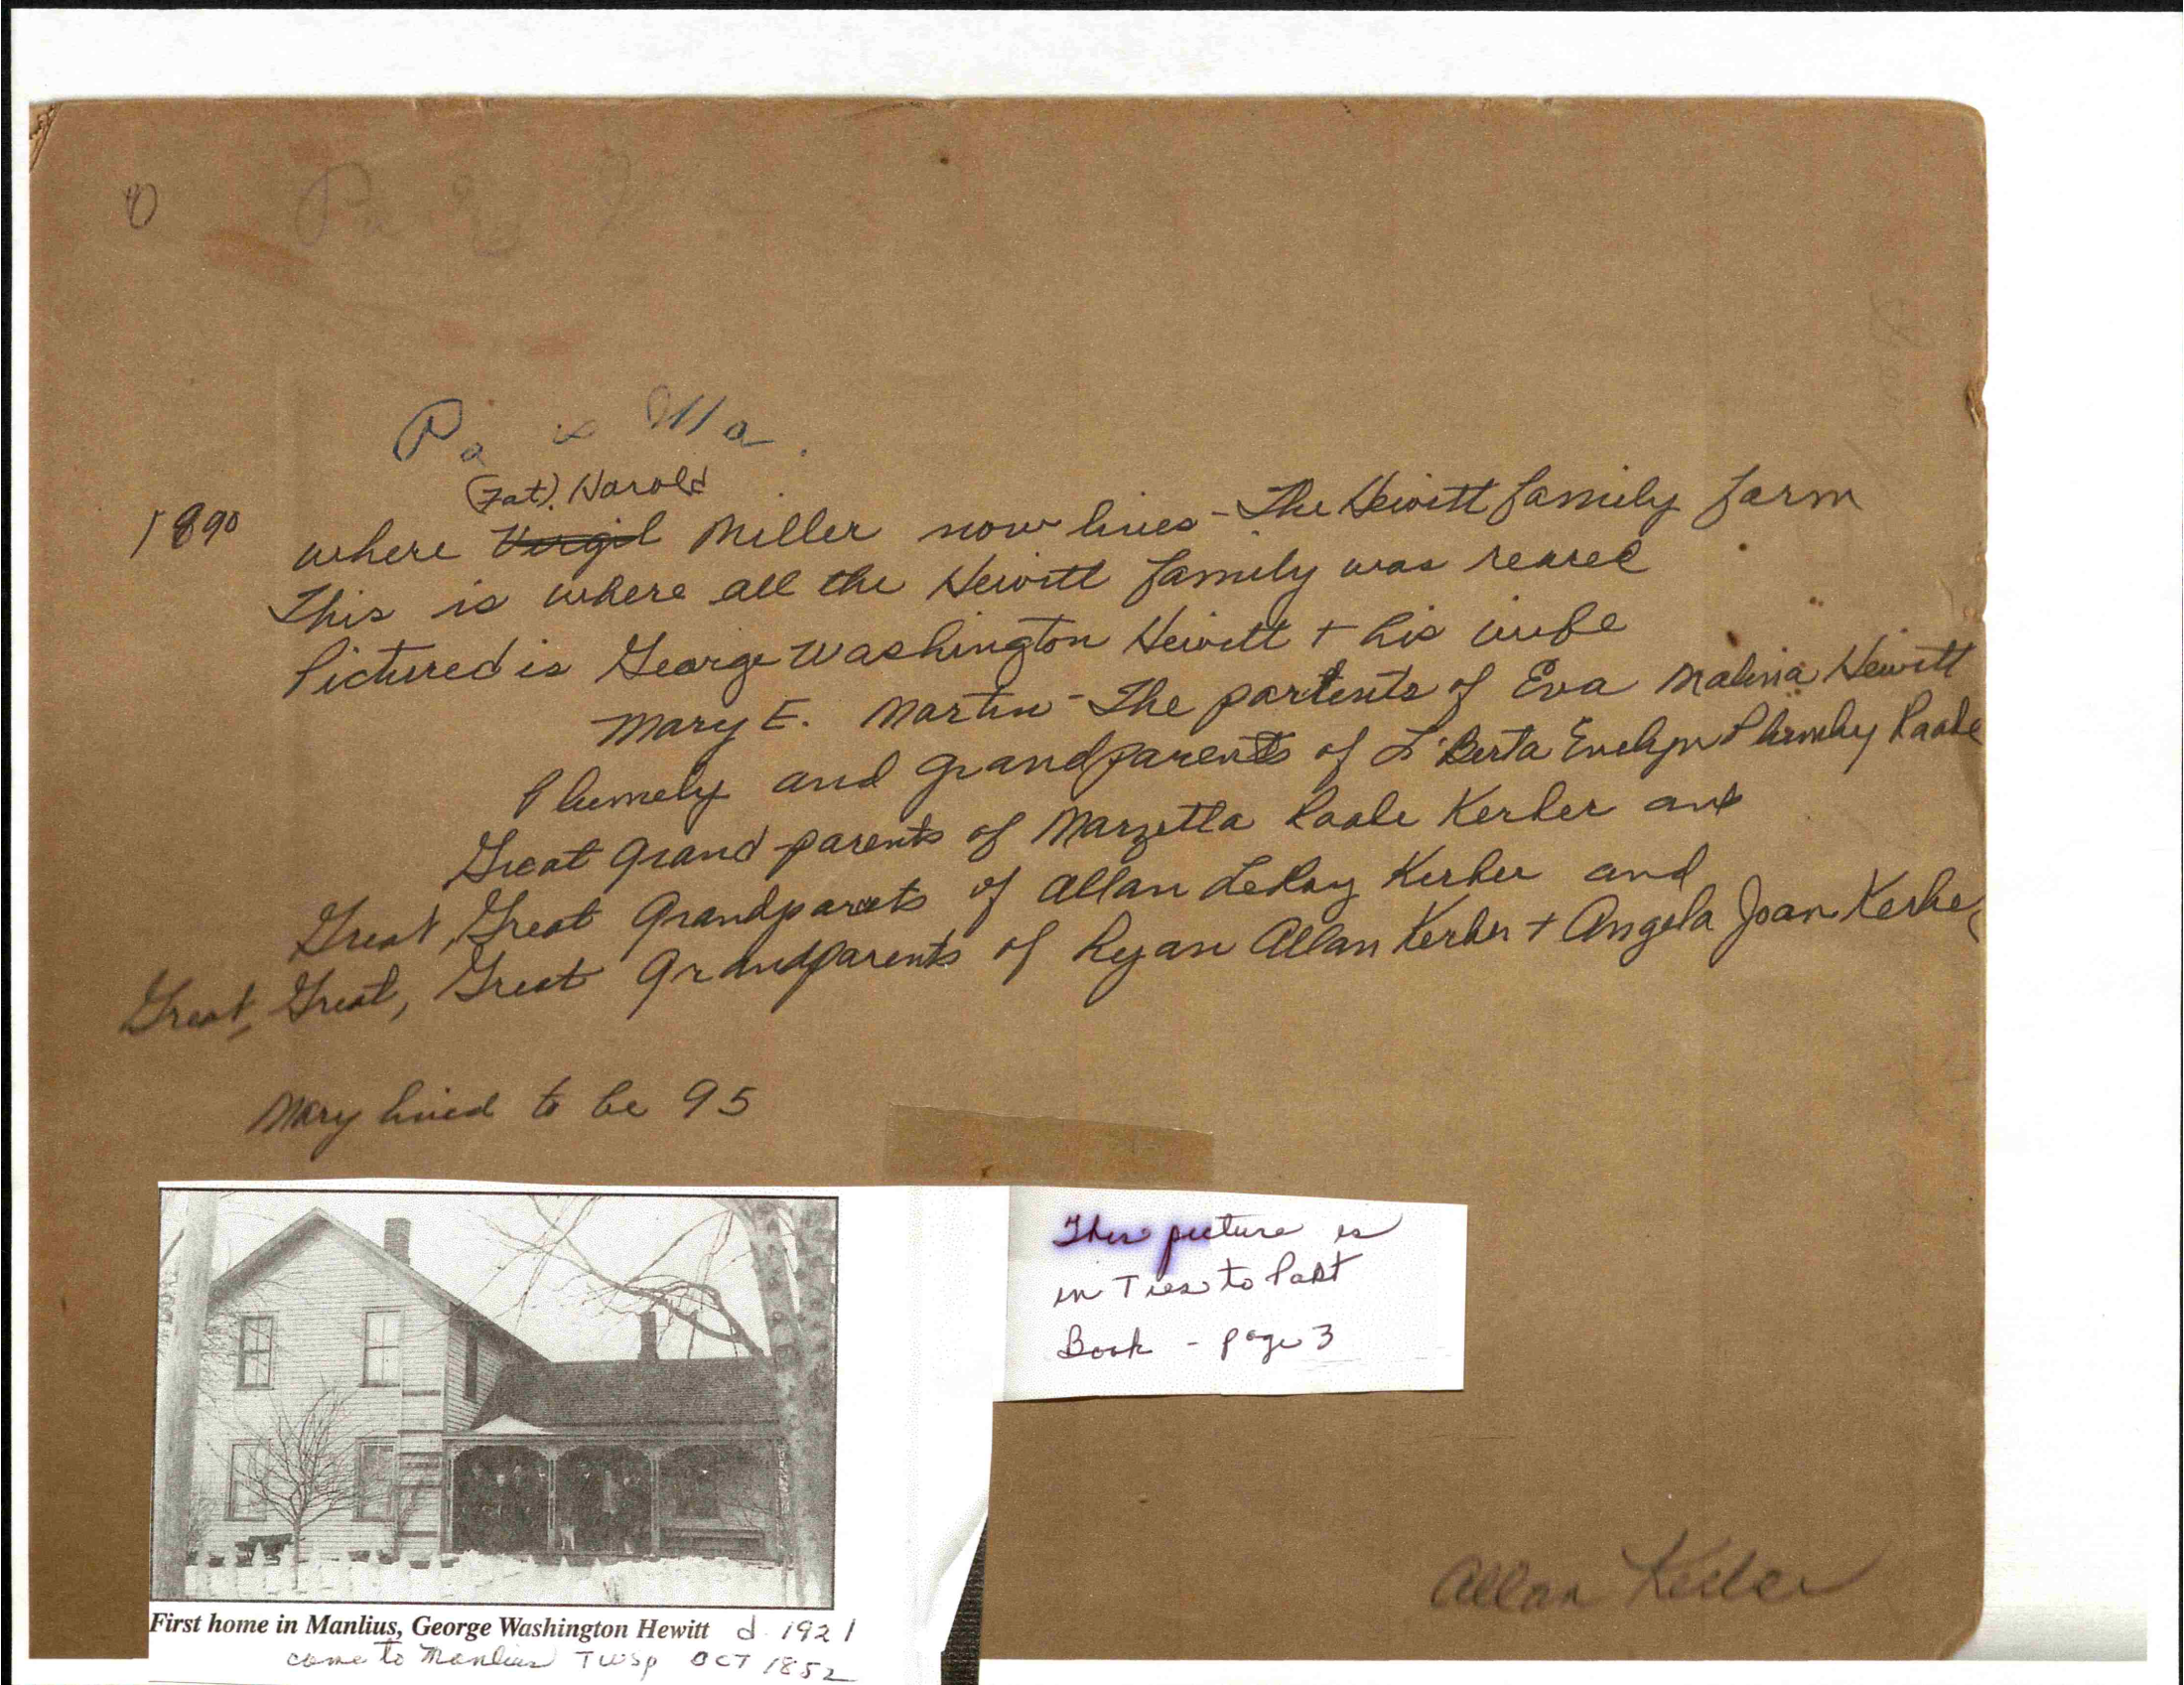 Pa & Ma.
(Fat). Harold
1890
where Virgil Miller now lives - The Hewitt family farm
This is where all the Hewitt family was reared
Pictured is George Washington Hewitt + his wife
Mary E. Martin - The partents of Eva Malina Hewitt
Plumely and grandparents of L'Berta Evelyn Plumley Poole
Great Grand parents of Marzetta Poole Kerber and
Great, Great Grandparets of Allan LeRoy Kerber and
Great, Great, Great Grandparents of Ryan Allan Kerber + Angela Joan Kerber
Mary lived to be 95
This picture is
in Ties to Past
Book - page 3
First home in Manlius, George Washington Hewitt d. 1921
came to Manlius Twsp OCT 1852
Allan Kerber